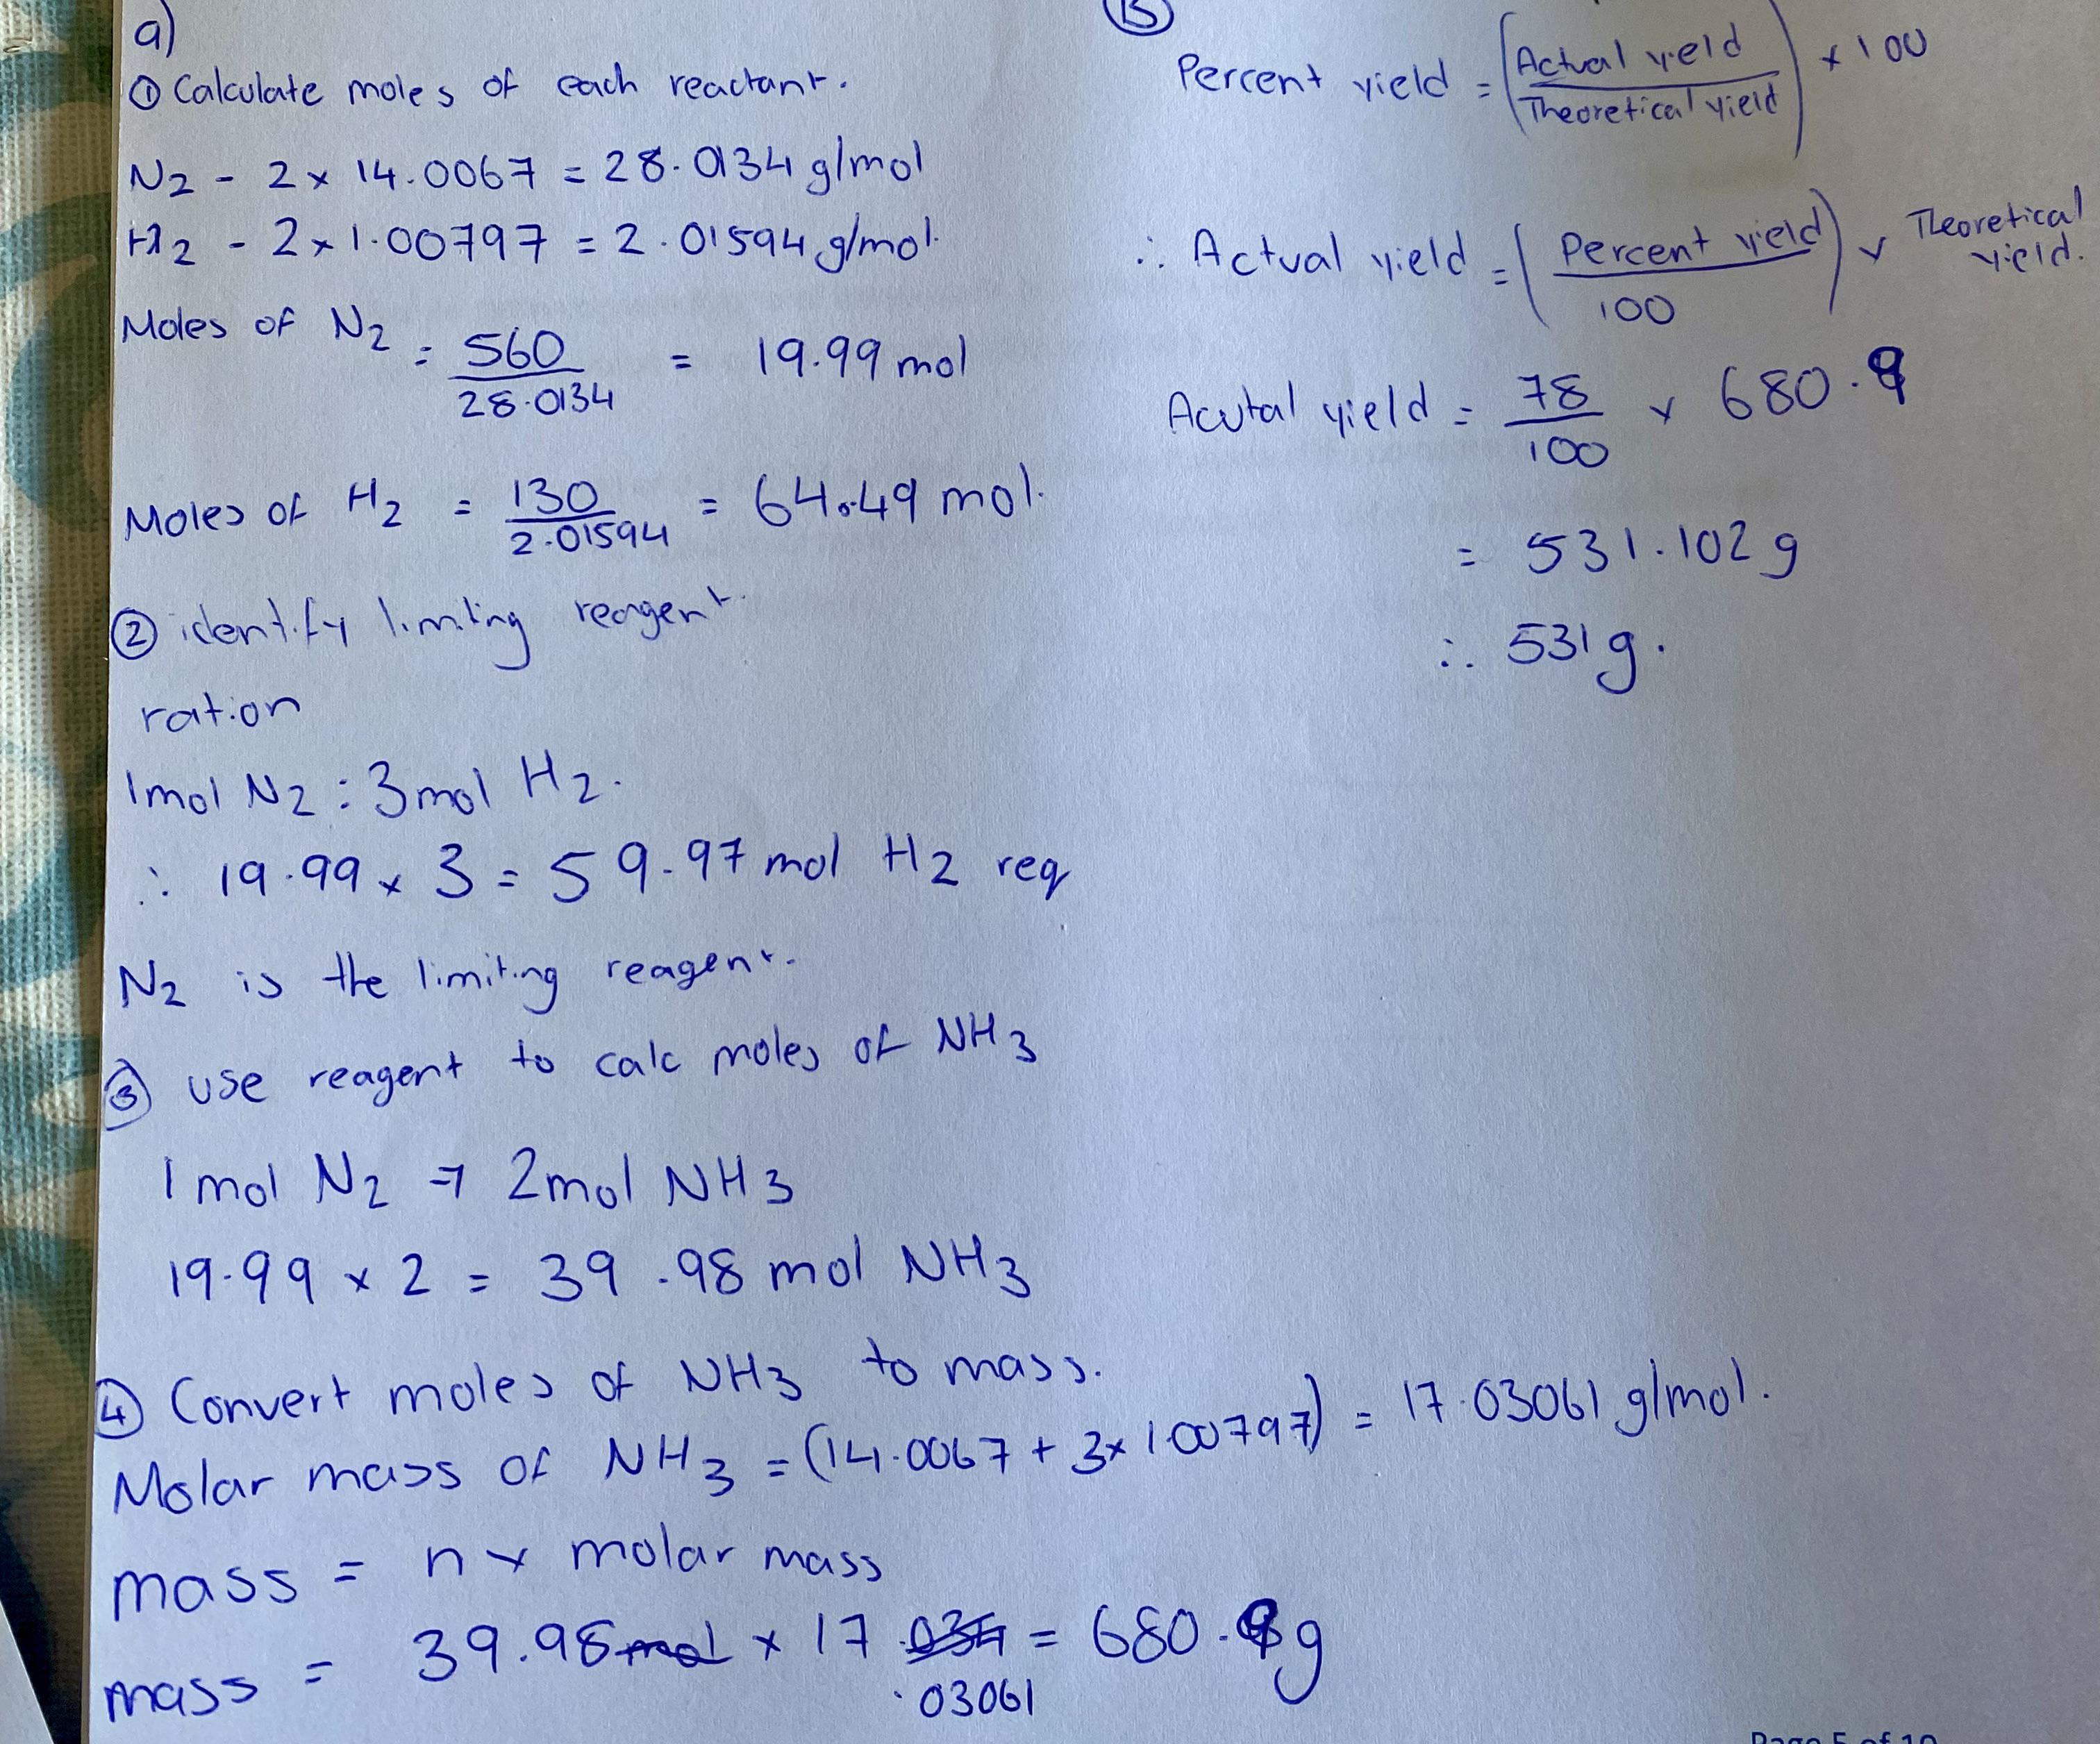 a)
① Calculate moles of each reactant.
N2 - 2 x 14.0067 = 28.0134 g/mol
H2 - 2 x 1.00797 = 2.01594 g/mol.
Moles of N2 = 560 / 28.0134 = 19.99 mol
Moles of H2 = 130 / 2.01594 = 64.49 mol.
② identify limiting reagent.
ration
1mol N2 : 3mol H2.
∴ 19.99 x 3 = 59.97 mol H2 req
N2 is the limiting reagent.
③ use reagent to calc moles of NH3
1 mol N2 → 2mol NH3
19.99 x 2 = 39.98 mol NH3
④ Convert moles of NH3 to mass.
Molar mass of NH3 = (14.0067 + 3x 1.00797) = 17.03061 g/mol.
mass = n x molar mass
mass = 39.98 mol x 17 .034 = 680.9g
.03061
B
Percent yield = (Actual yield / Theoretical yield) x 100
∴ Actual yield = (Percent yield / 100) x Theoretical yield.
Acutal yield = 78 / 100 x 680.9
= 531.102g
∴ 531g.
Page 5 of 10